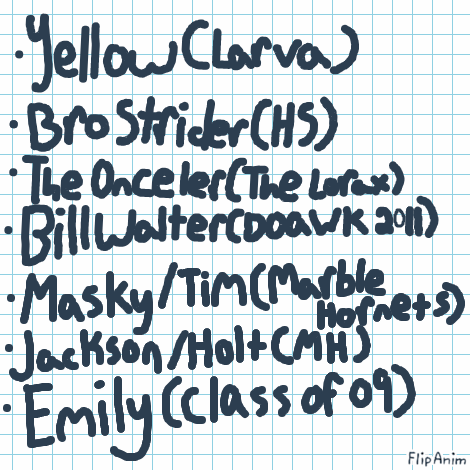 • Yellow (Larva)
• Bro Strider (HS)
• The Onceler (The Lorax)
• Bill Walter (DOAWK 2011)
• Masky/Tim (Marble
Hornets)
• Jackson/Holt (MH)
• Emily (class of 09)
FlipAnim